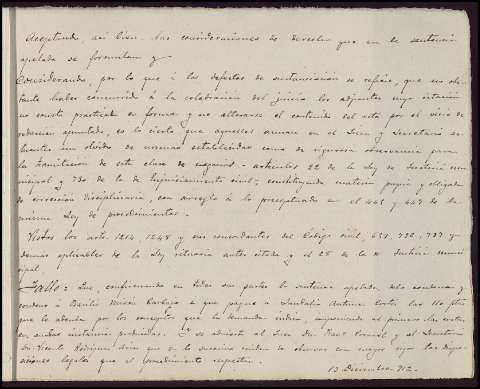 Aceptando, así bien las consideraciones de derecho que en la sentencia
apelada se formulan y
Considerando, por lo que á los defectos de sustanciación se refiere, que no obs-
tante haber concurrido á la celebración del juicio los adjuntos cuya citación
no consta practicada en forma y no alterarse el contenido del acta por el vicio de
redacción apuntado, es lo cierto que aquellos acusan en el Juez y Secretario ac-
tuantes un olvido de normas establecidas como de rigurosa observancia para
la tramitación de esta clase de negocios - artículos 22 de la Ley de Justicia mu-
nicipal y 730 de la de Enjuiciamiento civil; constituyendo materia propia y obligada
de corrección disciplinaria, con arreglo á lo preceptuado en el 445 y 447 de la
misma Ley de procedimientos.
Vistos los arts. 1214, 1248 y sus concordantes del Código civil, 732, 737 y
demás aplicables de la Ley rituaria antes citada y el 28 en la de Justicia muni-
cipal.
Fallo: Que, confirmando en todas sus partes la sentencia apelada, debo condenar y
condeno á Basilio á que pague á las 110 ptas
que le adeuda por los conceptos que la demanda indica, imponiendo al primero las costas
en ambas instancias producidas. Y se advierte al Juez Don y al Secretario
Don Vicente Rodríguez que en lo sucesivo cuiden de observar con mayor rigor las dispo-
siciones legales que al procedimiento respectan.
13 Diciembre 912.